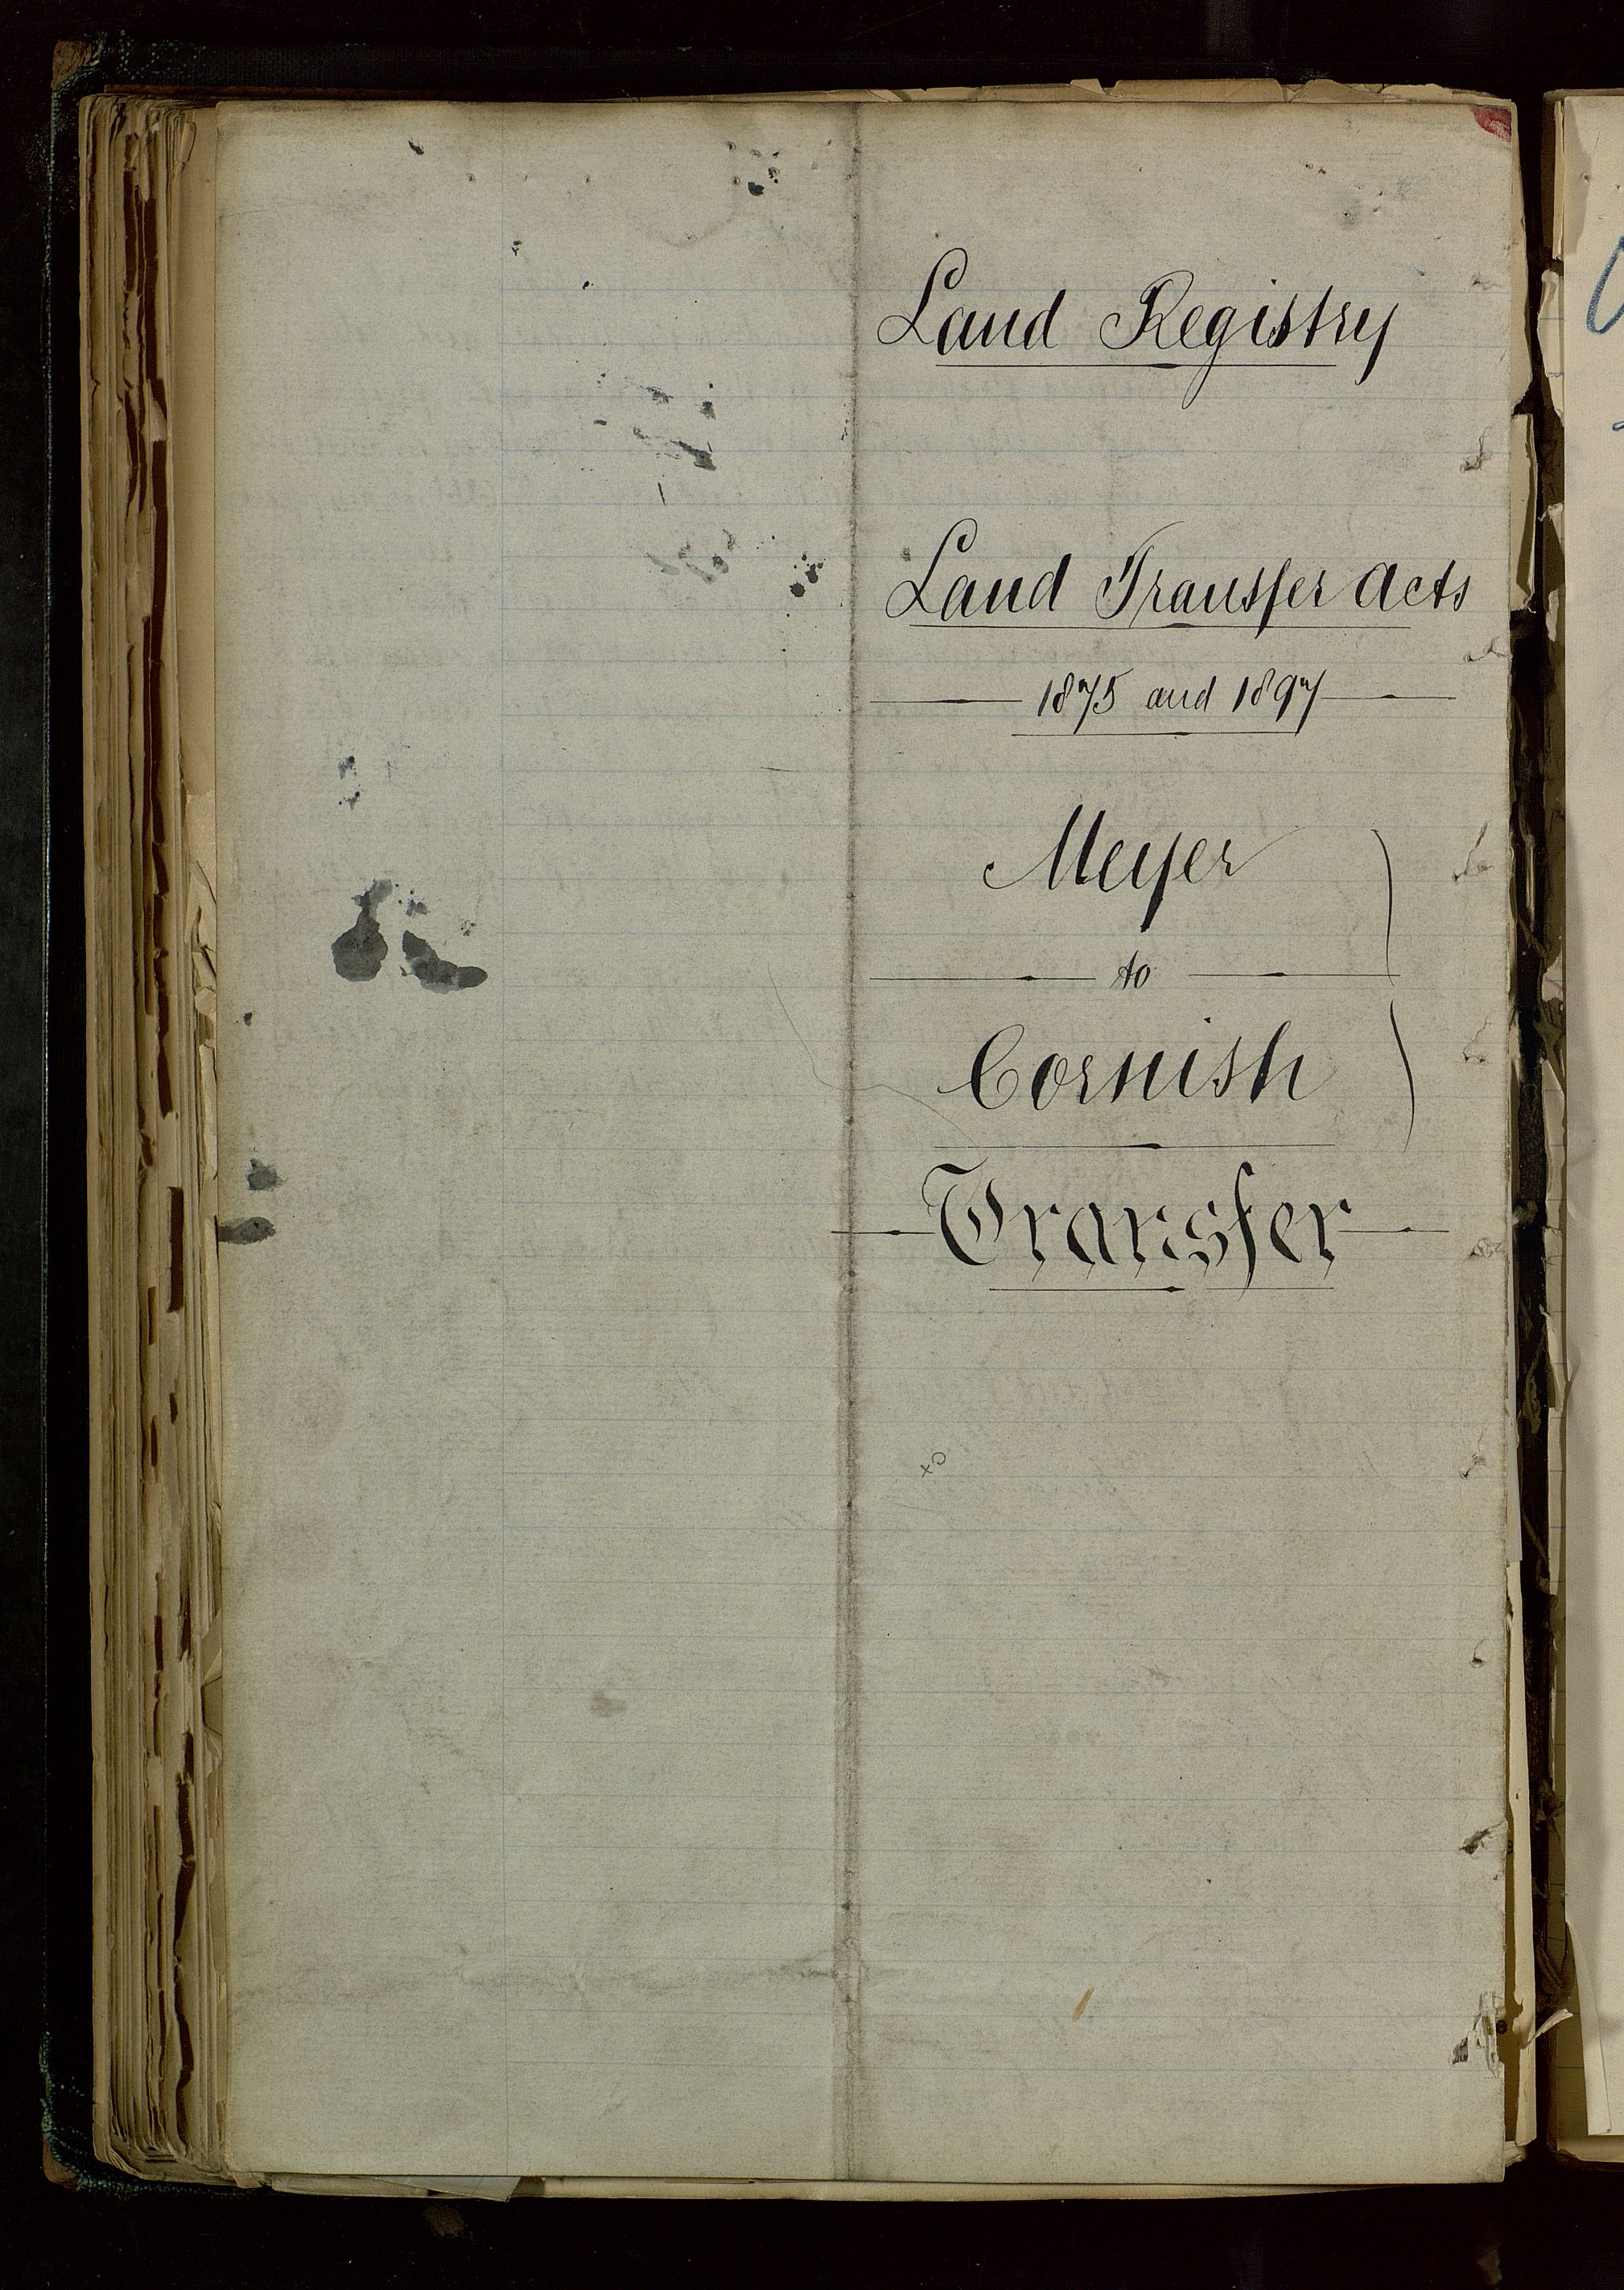 Land Registry
Land Transfer Acts
1875 and 1897
Meyer
to
Cornish
Transfer